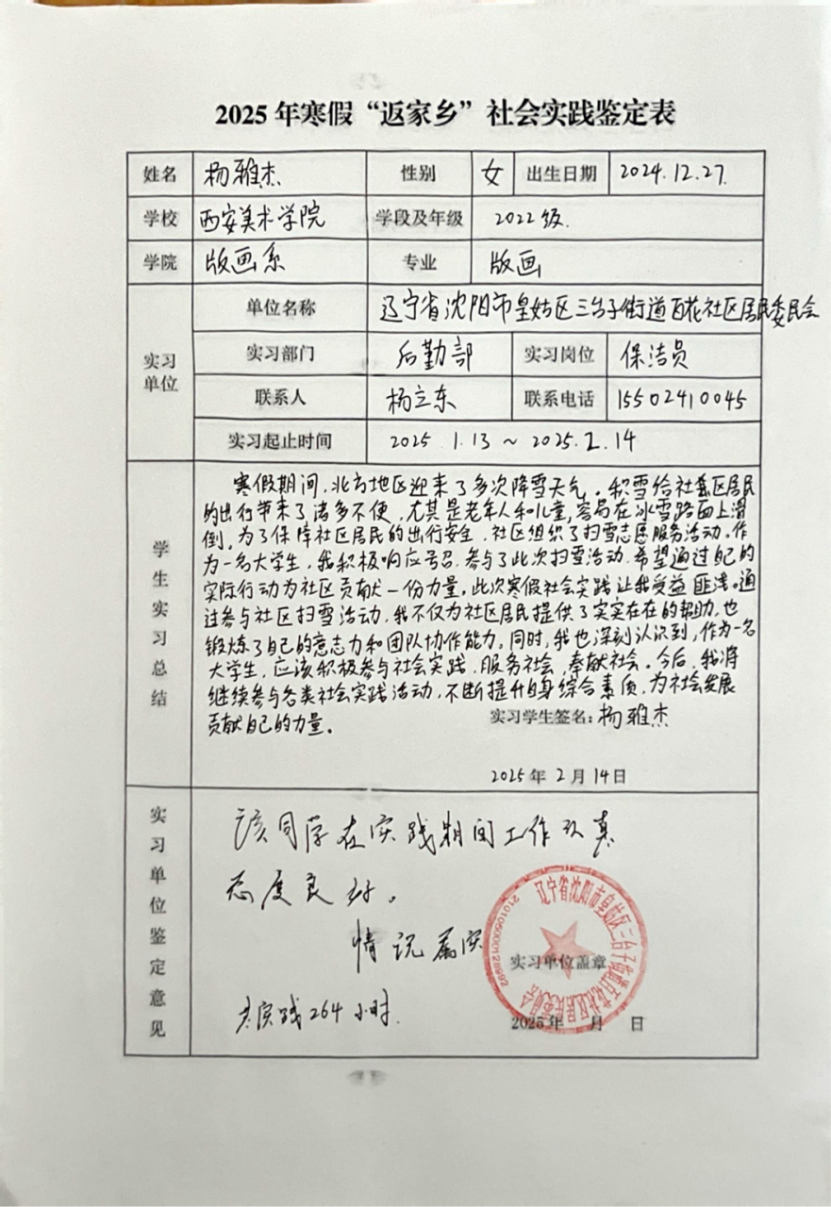 2025年寒假“返家乡”社会实践鉴定表
姓名 杨雅杰 性别 女 出生日期 2024.12.27.
学校 西安美术学院 学段及年级 2022级.
学院 版画系 专业 版画
实习单位
单位名称 辽宁省沈阳市皇姑区三台子街道百花社区居民委员会
实习部门 后勤部 实习岗位 保洁员
联系人 杨立东 联系电话 15502410045
实习起止时间 2025.1.13 ~ 2025.2.14
学生实习总结
寒假期间,北方地区迎来了多次降雪天气。积雪给社区居民
的出行带来了诸多不便,尤其是老年人和儿童,容易在冰雪路面上滑
倒,为了保障社区居民的出行安全,社区组织了扫雪志愿服务活动.作
为一名大学生,我积极响应号召,参与了此次扫雪活动,希望通过自己的
实际行动为社区贡献一份力量。此次寒假社会实践让我受益匪浅。通
过参与社区扫雪活动,我不仅为社区居民提供了实实在在的帮助,也
锻炼了自己的意志力和团队协作能力。同时,我也深刻认识到,作为一名
大学生,应该积极参与社会实践,服务社会,奉献社会。今后,我将
继续参与各类社会实践活动,不断提升自身综合素质,为社会发展
贡献自己的力量。
实习学生签名:杨雅杰
2025年2月14日
实习单位鉴定意见
该同学在实践期间工作认真
态度良好。
情况属实
实践264小时.
实习单位盖章
2025年 月 日
辽宁省沈阳市皇姑区三台子街道百花社区居民委员会